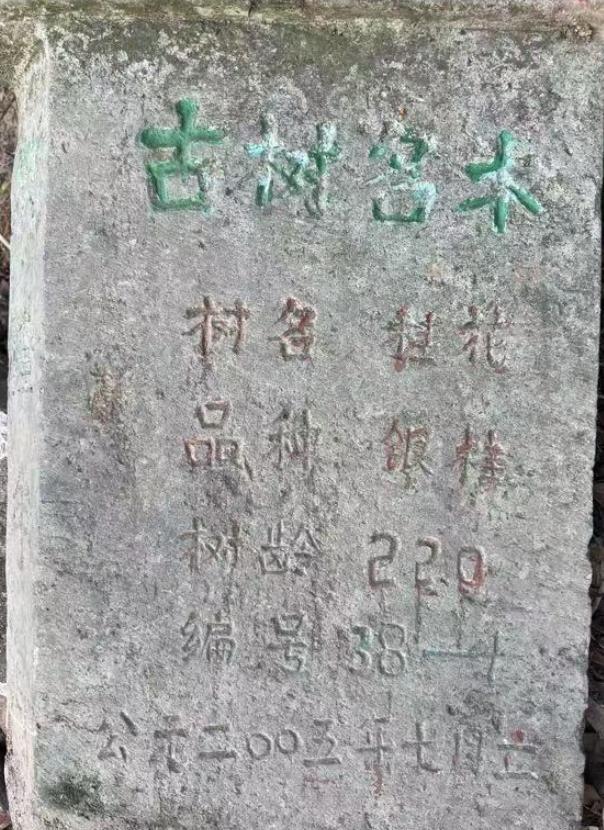 古树名木
树名 桂花
品种 银桂
树龄 220
编号 38—1
公元二〇〇五年七月立